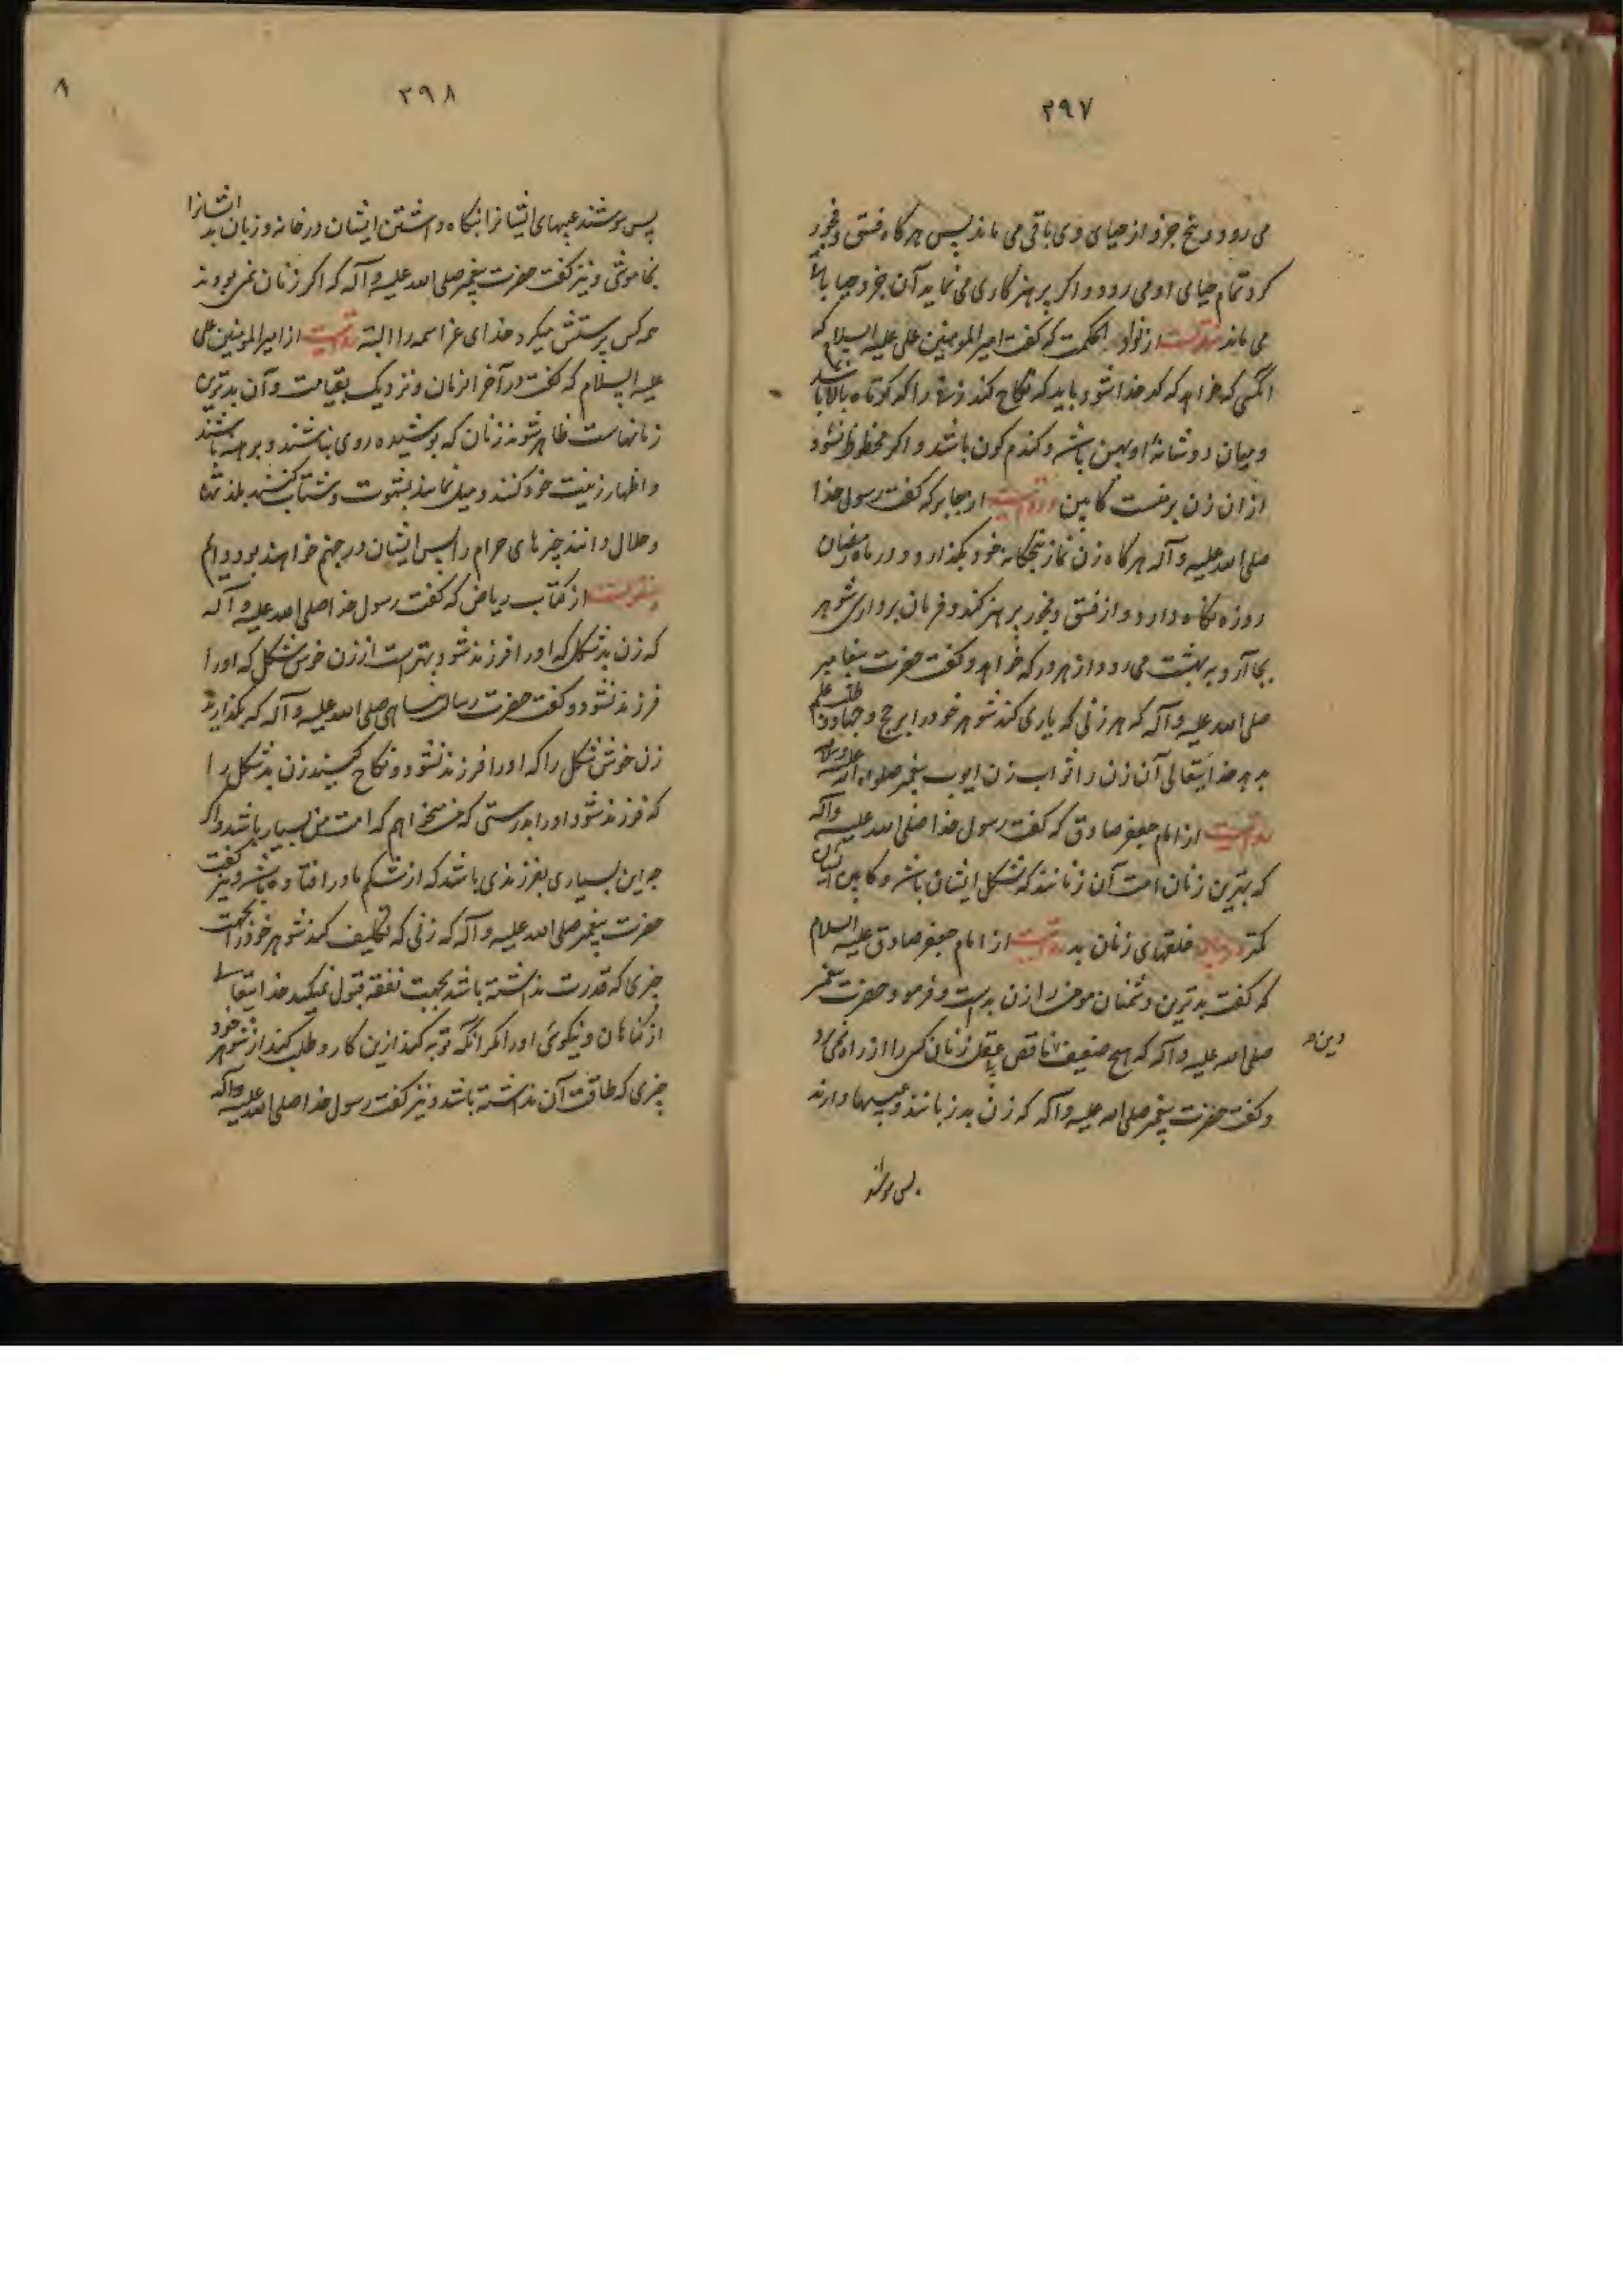 ۲۹۷
می رود و پنج جزو از حیای وی باقی می ماند پس هر کاه فسق و فجور
کرد تمام حیای او می رود و اکر پرهیزکاری می نماید آن جزو حیا بالا
می ماند منقولست از نوادر الحکمت که کفت امیرالمومنین علی علیه السلام که
انکسی که خواهد که کدخدا شود باید که نکاح کند زنی را که کوتاه بالا باشد
و میان دو شانۀ او پهن باشد و کندم کون باشد و اکر محظوظ نشود
از ان زن بر منست کابین و روایتست از جابر که کفت رسول خدا
صلی الله علیه و آله هر کاه زن نماز پنجکانه خود بکذارد و در ماه رمضان
روزه نکاه دارد و از فسق و فجور پرهیز کند و فرمان برداری شوهر
بجا آرد به بهشت می رود از هر در که خواهد و کفت حضرت پیغامبر
صلی الله علیه و آله که هر زنی که یاری کند شوهر خود را بر حج و جهاد و طلب علم
بدهد خدایتعالی آن زن را ثواب زن ایوب پیغمبر صلوات الله علیه و آله
روایتست از امام جعفر صادق که کفت رسول خدا صلی الله علیه و آله
که بهترین زنان امت آن زنانند که شکل ایشان باشد و کابین ایشان
کمتر در بیان خلقهای زنان بد روایتست از امام جعفر صادق علیه السلام
که کفت بدترین دشمنان مومن را زن بد است و فرمود حضرت پیغمبر
صلی الله علیه و آله که هیچ ضعیف ناقص عقل زنان کس را از راه نمی برد
دین
و کفت حضرت پیغمبر صلی الله علیه و آله که زن بد زبانند و عیبها دارند
پس بپوشند
۲۹۸
۸
پس بپوشند عیبهای ایشانرا بنکاه داشتن ایشان در خانه و زبان بد ایشانرا
بخاموشی و نیز کفت حضرت پیغمبر صلی الله علیه و آله که اکر زنان نمی بودند
همه کس پرستش میکرد خدای عز اسمه را البته روایتست از امیرالمومنین علی
علیه السلام که کفت در آخر الزمان و نزدیک بقیامت و آن بدترین
زمانهاست ظاهر شوند زنان که پوشیده روی نباشند و برهنه باشند
و اظهار زینت خود کنند و میل نمایند بشهوت و شتاب کنند بلذتها
و حلال دانند چیزهای حرام را پس ایشان در جهنم خواهند بود دوایم
منقولست از کتاب ریاض که کفت رسول خدا صلی الله علیه و آله
که زن بد شکل که اورا فرزند شود بهتر است از زن خوش شکل که اورا
فرزند نشود و کفت حضرت رسالت پناهی صلی الله علیه و آله که بکذارید
زن خوش شکل را که اورا فرزند نشود و نکاح کنید زن بد شکل را
که فرزند شود اورا بدرستی که من میخواهم که امت من بسیار باشد و اکر
چه این بسیاری بفرزندی باشد که از شکم مادر افتاده باشد و نیز کفت
حضرت پیغمبر صلی الله علیه و آله که زنی که تکلیف کند شوهر خود را بجهت
چیزی که قدرت نداشته باشد بجهت نفقه قبول نمیکند خدایتعالی
از کناهان و نیکوئی اورا مکر انکه توبه کند ازین کار و طلب کند از شوهر خود
چیزی که طاقت آن نداشته باشد و نیز کفت رسول خدا صلی الله علیه و آله